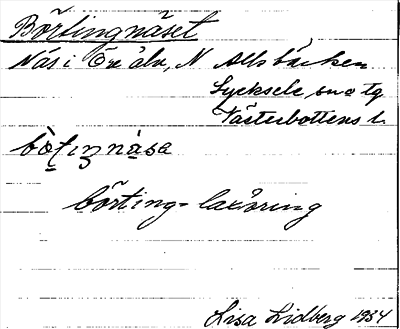 Börtingnäset
Näs i Öre älv, N Allsbäcken
Lycksele, sn o tg
Västerbottens l.
börting = laxöring
Lisa Lidberg 1934